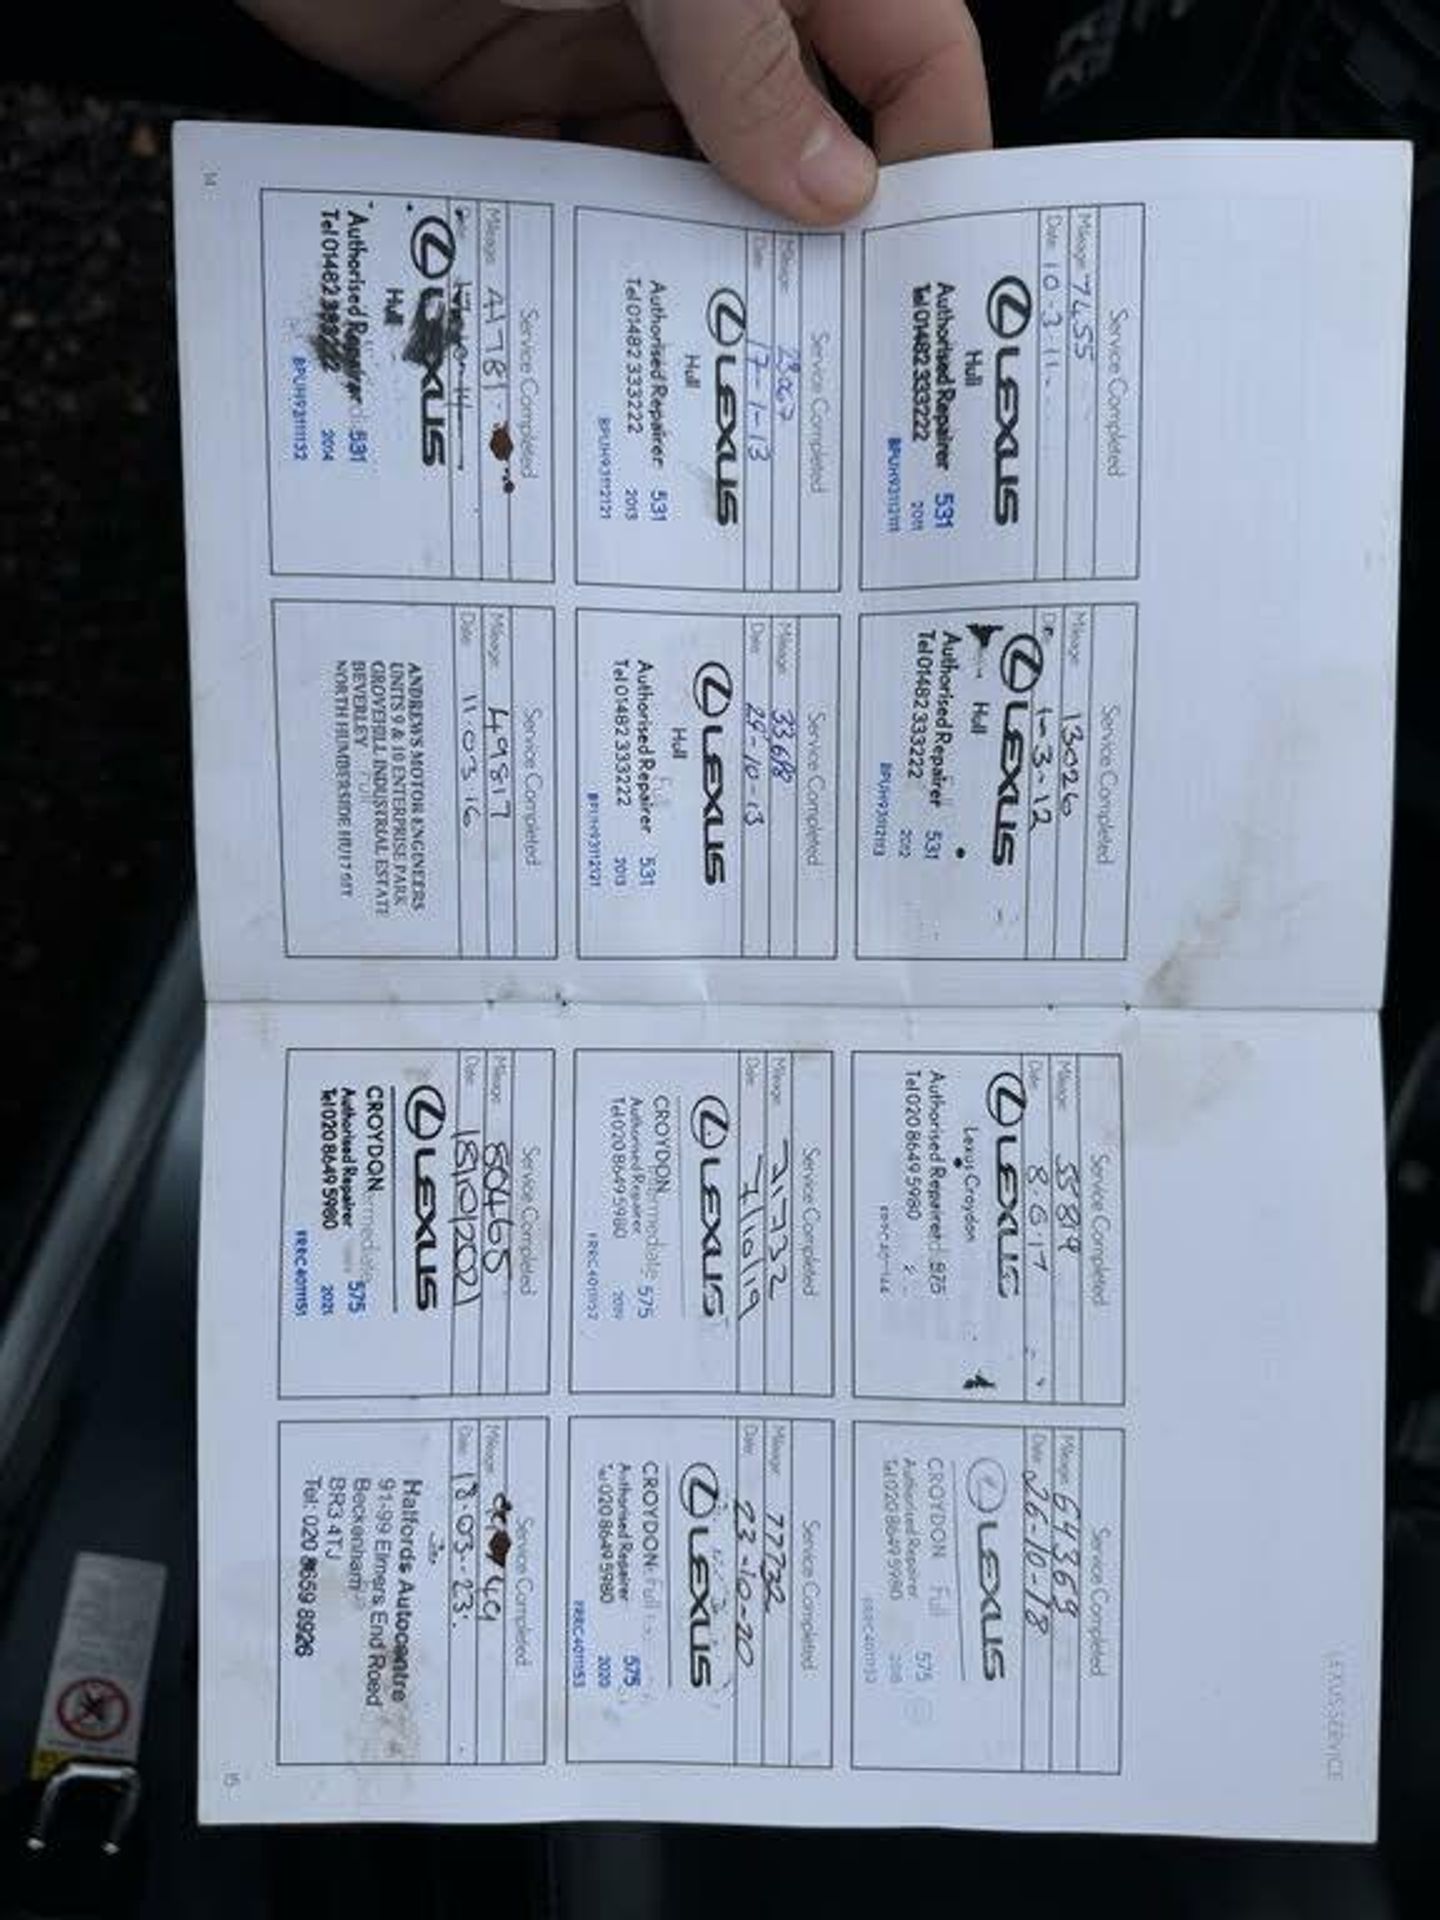 LEXUS SERVICE
Service Completed
Mileage: 7455
Date: 10-3-11-
LEXUS
Hull
Authorised Repairer 531
Tel 01482 333222 2011
Service Completed
Mileage: 13026
Date: 1-3-12
LEXUS
Hull
Authorised Repairer 531
Tel 01482 333222 2012
Service Completed
Mileage: 23067
Date: 17-1-13
LEXUS
Hull
Authorised Repairer 531
Tel 01482 333222 2013
BPUH93112121
Service Completed
Mileage: 33698
Date: 29-10-13
LEXUS
Hull
Authorised Repairer 531
Tel 01482 333222 2013
BPUH93112121
Service Completed
Mileage: 41781
LEXUS
Hull
Authorised Repairer 531
Tel 01482 333222 2014
Service Completed
Mileage: 49817
Date: 11.03.16
ANDREWS MOTOR ENGINEERS
UNITS 9 & 10 ENTERPRISE PARK
GROVEHILL INDUSTRIAL ESTATE
BEVERLEY
NORTH HUMBERSIDE
14
Service Completed
Mileage:
Date: 8.6.17
LEXUS
Lexus Croydon
Authorised Repairer 575
Tel 020 8649 5980
Service Completed
Mileage: 64369
Date: 26-10-18
LEXUS
CROYDON Full
Authorised Repairer 575
Tel 020 8649 5980 2018
Service Completed
Mileage: 71732
Date:
LEXUS
CROYDON
Authorised Repairer 575
Tel 020 8649 5980 2019
Service Completed
Mileage: 77732
Date: 23-10-20
LEXUS
CROYDON Full
Authorised Repairer 575
Tel 020 8649 5980 2020
FRRC4011153
Service Completed
Mileage: 80465
Date:
LEXUS
CROYDON
Authorised Repairer 575
Tel 020 8649 5980 2021
FRRC4011151
Service Completed
Mileage:
Date: 18.03.23.
Halfords Autocentre
91-99 Elmers End Road
Beckenham
BR3 4TJ
Tel: 020 8659 8926
15